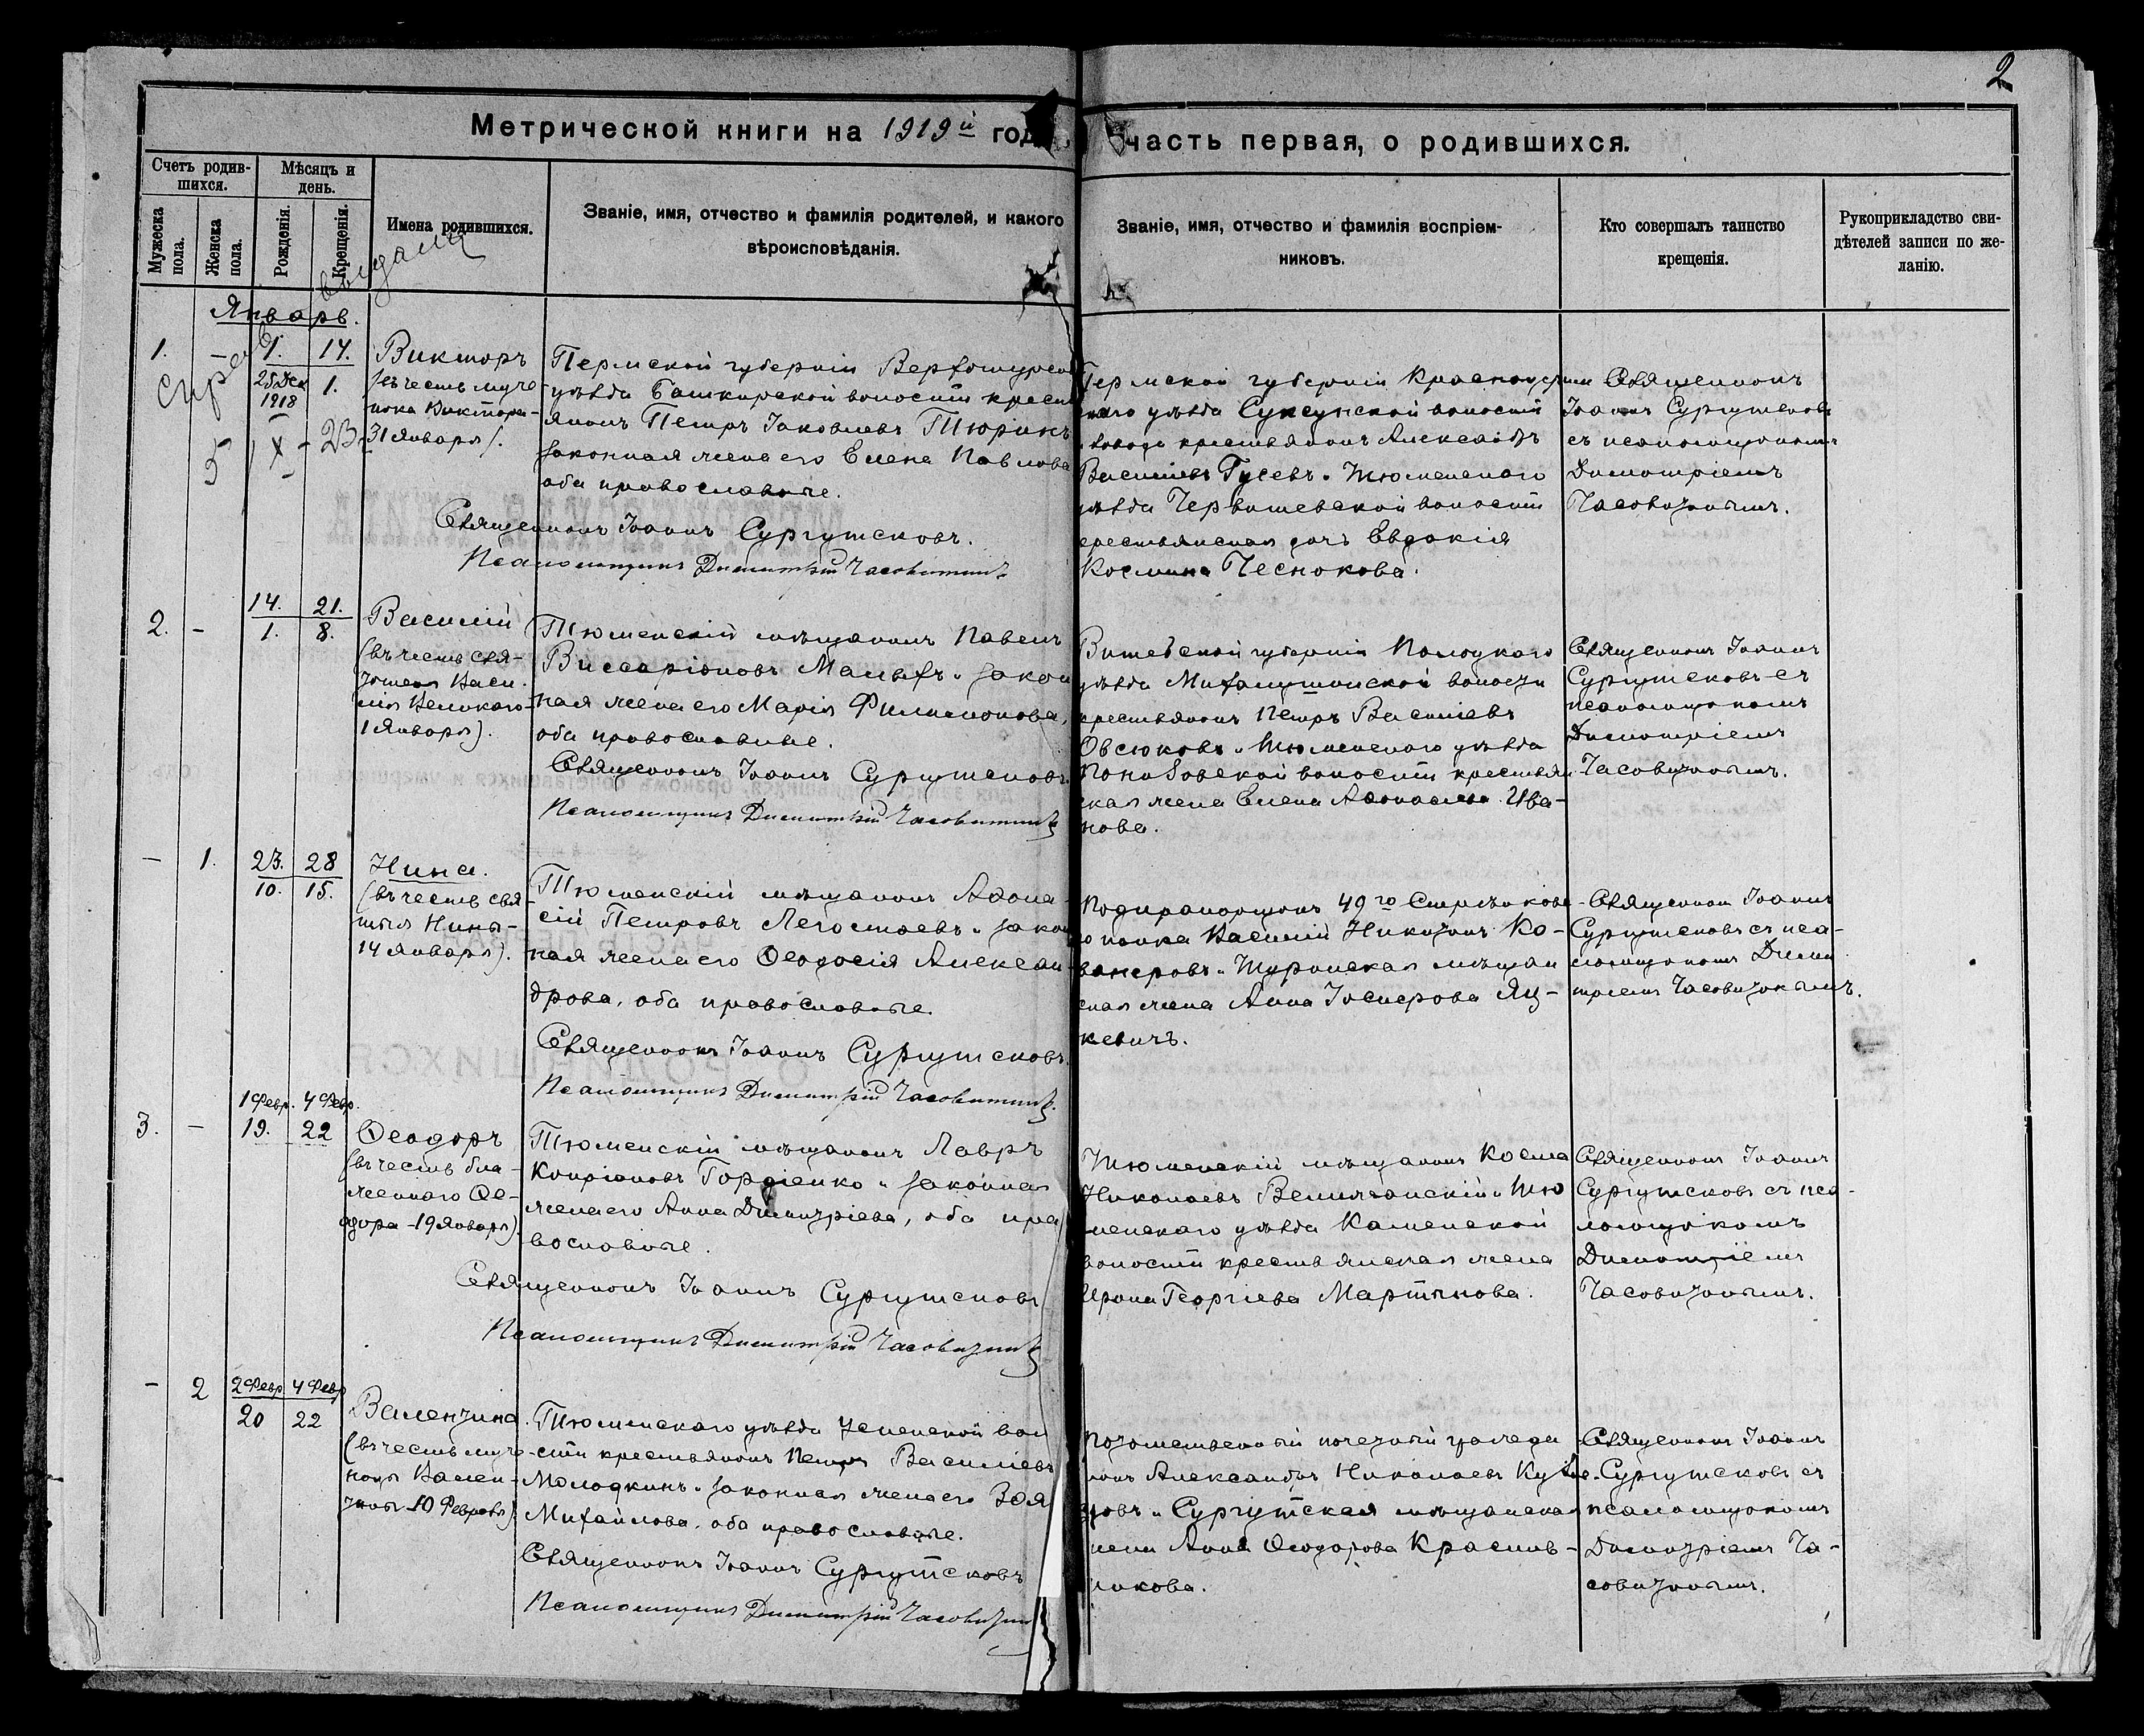 2
Метрической книги на 1919й год
часть первая, о родившихся.
Счетъ родив-
шихся.
Мѣсяцъ и
день.
Мужеска
пола.
Женска
пола.
Рожденія.
Крещенія.
Имена родившихся.
Званіе, имя, отчество и фамилія родителей, и какого
вѣроисповѣданія.
Званіе, имя, отчество и фамилія воспріем-
никовъ.
Кто совершалъ таинство
крещенія.
Рукоприкладство сви-
дѣтелей записи по же-
ланію.
Январь.
1. – 1. 14.
25 Дек 1.
1918
Викторъ
(въ честь муче
ника Виктора -
31 Января).
Пермской губерніи Верхотурск
уѣзда Башкирской волости крест
янинъ Петръ Іаковлевъ Тюринъ
законная жена его Елена Павлова
оба православные.
Священникъ Іоаннъ Сургутсковъ.
Псаломщикъ Димитрій Часовитинъ
Пермской губерніи Красноуфим
скаго уѣзда Суксунской волости
крестьянинъ Александръ
Васильевъ Гусевъ и Тюменскаго
уѣзда Червишевской волости
крестьянская дочь Евдокія
Космина Чеснокова.
Священникъ
Іоаннъ Сургутсковъ
съ псаломщикомъ
Димитріемъ
Часовитинымъ.
2. – 14. 21.
1. 8.
Василій
(въ честь свя-
тителя Васи-
лія Великаго
1 Января).
Тюменскій мѣщанинъ Павелъ
Виссаріоновъ Малыхъ и закон
ная жена его Марія Филимонова,
оба православные.
Священникъ Іоаннъ Сургутсковъ
Псаломщикъ Димитрій Часовитинъ
Витебской губерніи Полоцкаго
уѣзда волости
крестьянинъ Петръ Васильевъ
Овсюковъ и Тюменскаго уѣзда
волости крестьян
ская жена Елена Аѳонасьева Ива-
нова.
Священникъ Іоаннъ
Сургутсковъ съ
псаломщикомъ
Димитріемъ
Часовитинымъ.
– 1. 23. 28
10. 15.
Нина.
(въ честь свя
тыя Нины -
14 Января).
Тюменскій мѣщанинъ Аѳона-
сій Петровъ Легостаевъ и закон
ная жена его Ѳеодосія Алексан-
дрова, оба православные.
Священникъ Іоаннъ Сургутсковъ.
Псаломщикъ Димитрій Часовитинъ.
Подпрапорщикъ 49го Стрѣлкова
го полка Василій Никитинъ Ко-
и Туринская мѣщан
ская жена Анна Іосифова Яц-
кевичъ.
Священникъ Іоаннъ
Сургутсковъ съ пса-
ломщикомъ Дими
тріемъ Часовитинымъ.
1 Февр. 4 Февр.
3. – 19. 22
Ѳеодоръ
(въ честь бла-
женнаго Ѳе-
одора - 19 Января).
Тюменскій мѣщанинъ Лавръ
Кипріановъ Гордіенко и законная
жена его Анна Димитріева, оба пра
вославные.
Священникъ Іоаннъ Сургутсковъ
Псаломщикъ Димитрій Часовитинъ
Тюменскій мѣщанинъ Косма
Николаевъ и Тю
менскаго уѣзда Каменской
волости крестьянская жена
Ирина Георгіева Мартынова.
Священникъ Іоаннъ
Сургутсковъ съ пса-
ломщикомъ
Димитріемъ
Часовитинымъ.
– 2 2 Февр 4 Февр
20 22
Валентина
(въ честь муче
ницы Вален-
тины 10 Февраля)
Тюменскаго уѣзда Успенской вол
сти крестьянинъ Петръ Васильевъ
Молодкинъ и законная жена его Зоя
Михайлова, оба православные.
Священникъ Іоаннъ Сургутсковъ
Псаломщикъ Димитрій Часовитин
Потомственный почетный гражда
нинъ Александръ Николаевъ Кузне
цовъ и Сургутская мѣщанская
жена Анна Ѳеодорова Красиль-
никова.
Священникъ Іоаннъ
Сургутсковъ съ
псаломщикомъ
Димитріемъ Ча-
совитинымъ.